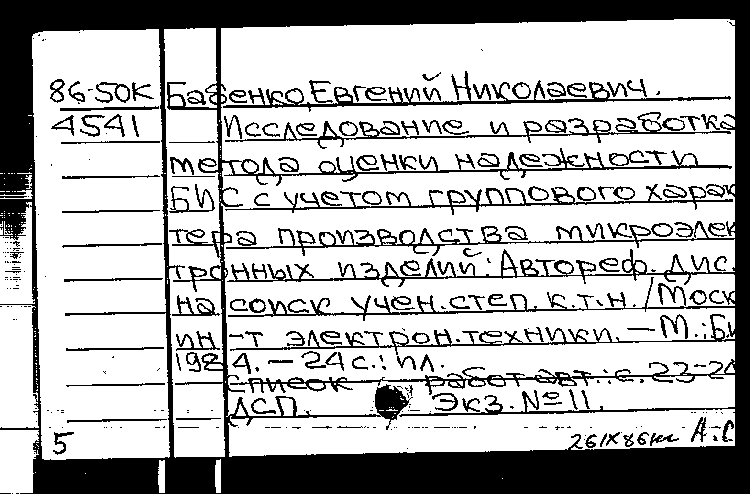 86-50К Бабенко, Евгений Николаевич.
4541 Исследование и разработка
метода оценки надежности
БИС с учетом группового харак
тера производства микроэлек
тронных изделий: Автореф. дис.
на соиск учен. степ. к.т.н. / Моск
ин-т электрон. техники. — М.: Б.и
1984. — 24 с.: ил.
Список работ авт.: с. 23-24
ДСП. Экз. № 11.
5 26 IX 86 А.С